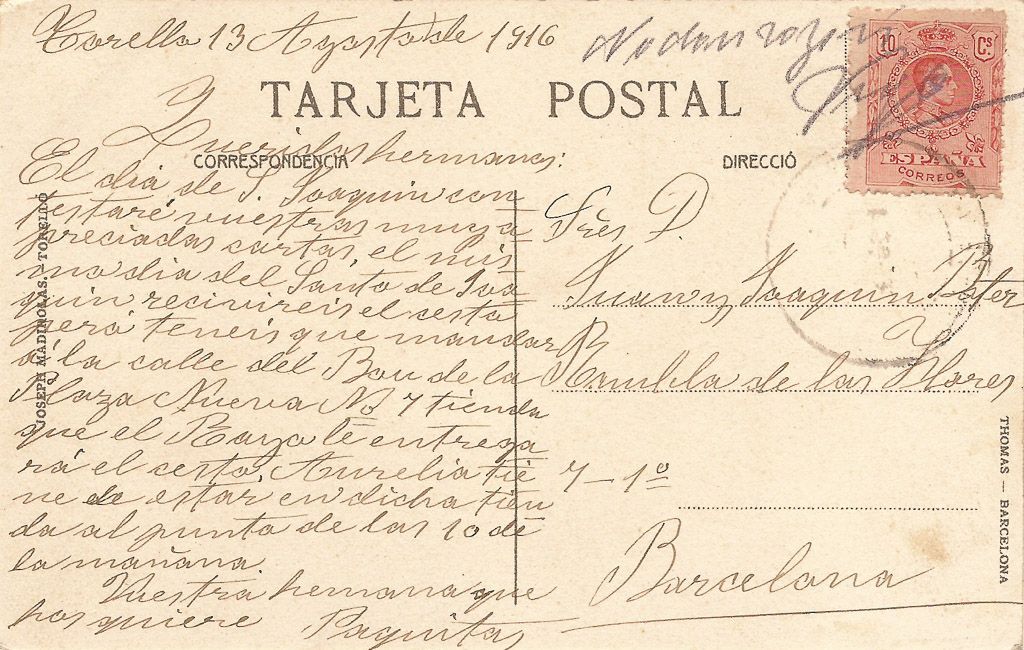 Torello 13 Agosto de 1916
TARJETA POSTAL
CORRESPONDENCIA
DIRECCIÓ
Queridos hermanos:
El dia de S. Joaquin con
testaré vuestras muy a
preciadas cartas, el mis
mo dia del Santo de Joa
quin recivireis el cesto
pero teneis que mandar
á la calle del Bou de la
Plaza Nueva No 7 tienda
que el Rayo le entrega
rá el cesto, Aurelia tie
ne de estar en dicha tien
da al punto de las 10 de
la mañana.
Vuestra hermana que
hos quiere Paquita
Srès D.
Juan y Joaquin
Rambla de las Flores
7 - 1º
Barcelona
10 Cs
ESPAÑA
CORREOS
JOSEPH MADIROLAS. TORELLÓ
THOMAS — BARCELONA